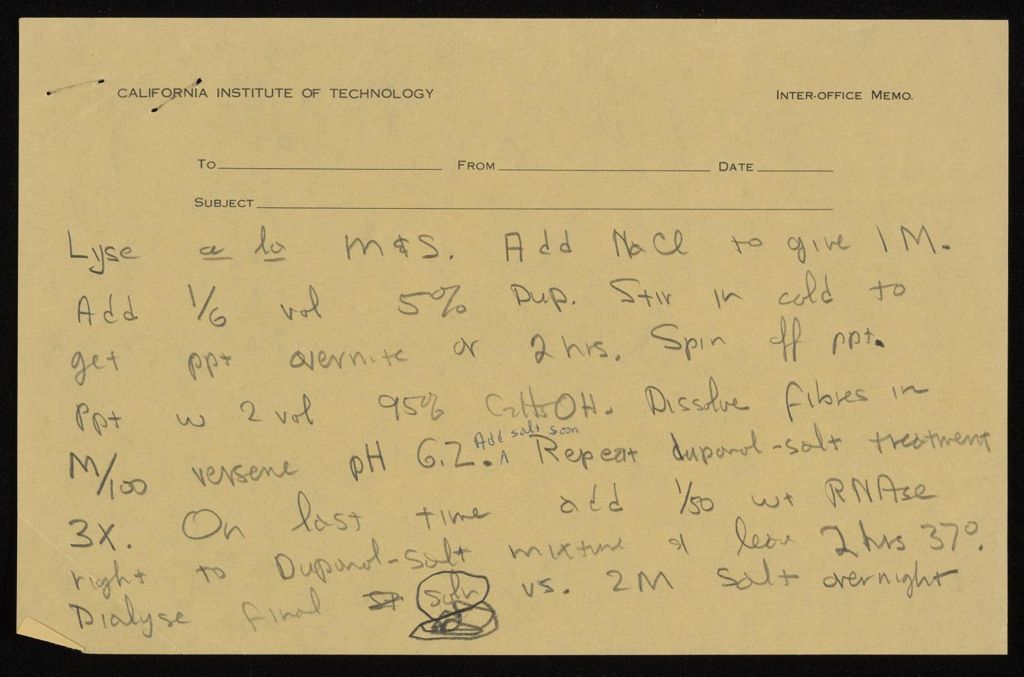 CALIFORNIA INSTITUTE OF TECHNOLOGY INTER-OFFICE MEMO.
TO FROM DATE
SUBJECT
Lyse a la M & S. Add NaCl to give 1 M.
Add 1/6 vol 5% Dup. Stir in cold to
get ppt overnite or 2 hrs. Spin off ppt.
Ppt w 2 vol 95% C2H5OH. Dissolve fibres in
Add salt soon
M/100 versene pH 6.2. ^ Repeat duponol-salt treatment
3X. On last time add 1/50 wt RNAse
right to Duponol-salt mixture & leave 2 hrs 37°.
Dialyse final soln vs. 2M salt overnight